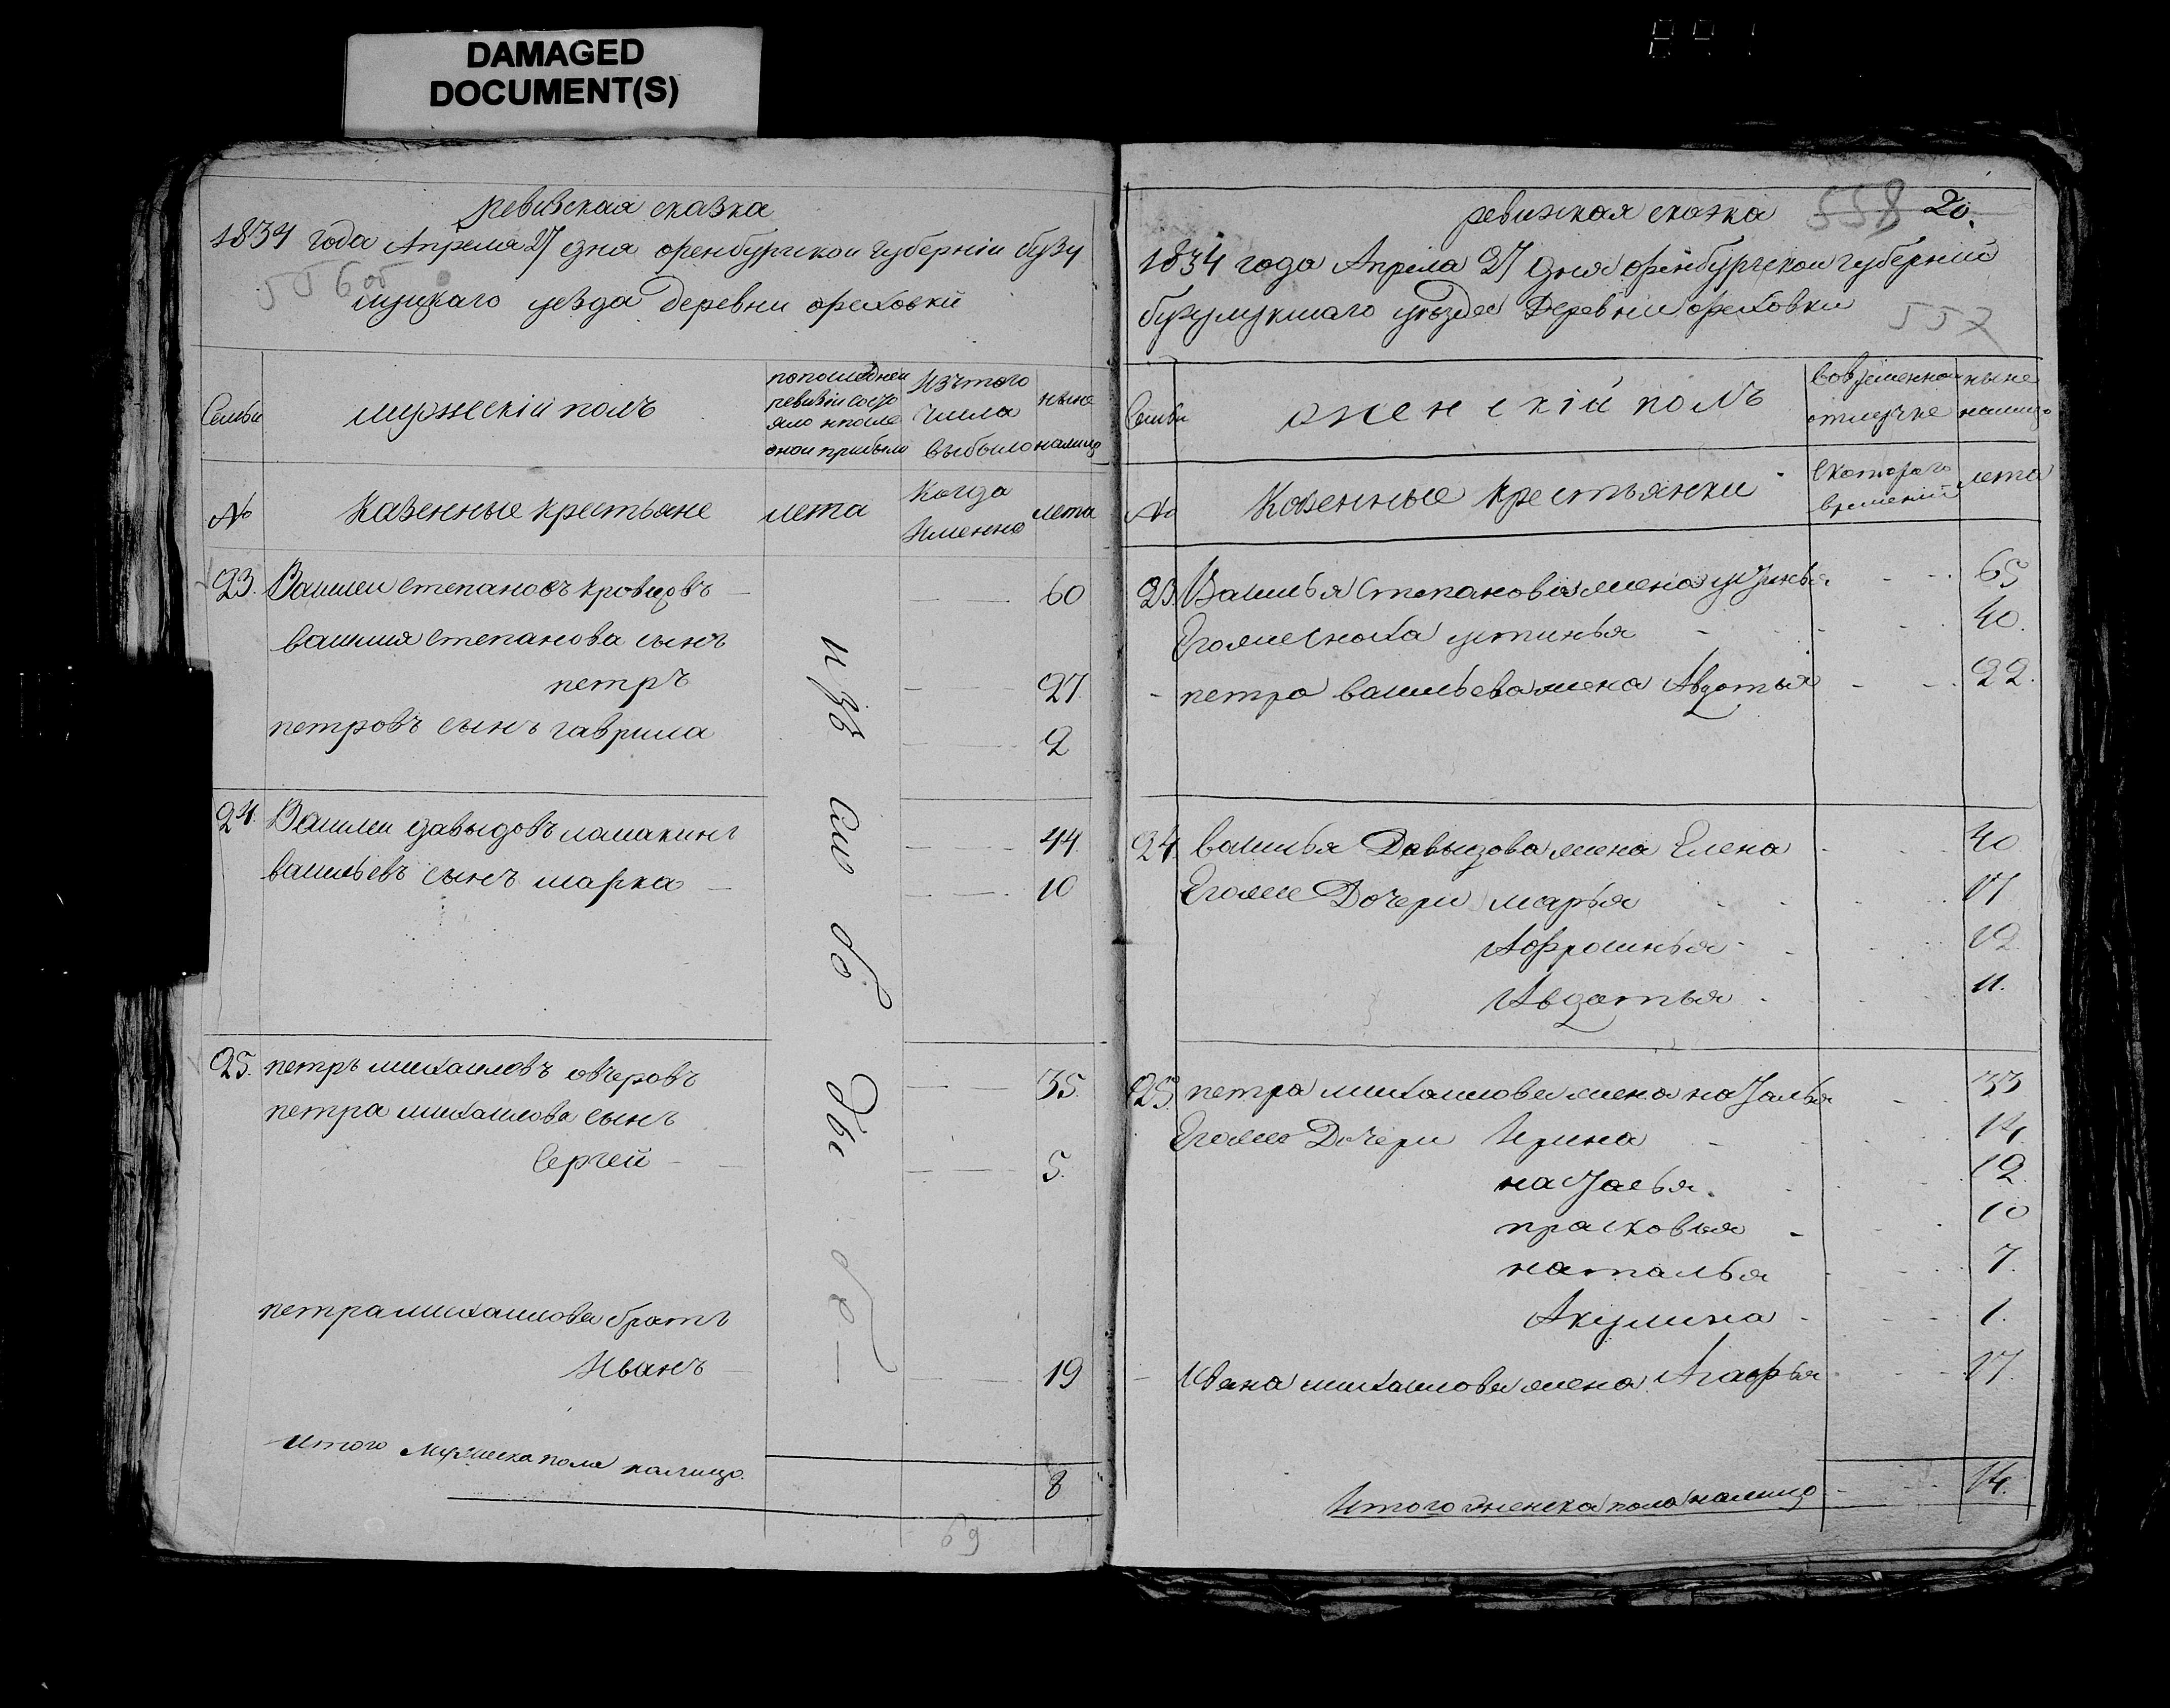 DAMAGED
DOCUMENT(S)
ревизская сказка
1834 года Апреля 27 дня оренбургскои губерніи бузу
луцкаго уезда деревни ореховки
Семьи
мужескій полъ
попоследней
ревизіи состо
яло ипосле
онои прибыло
Изътого
числа
выбыло
ныне
налицо
№
Казенные крестьяне
лета
Когда
Именно
лета
23. Василеи степановъ кровцовъ 60
василия степанова сынъ
петръ 27
петровъ сынъ гаврила 2
24. Василеи давыдовъ ламакинъ 44
васильевъ сынъ марка 10
25. петръ михаиловъ овчеровъ 35.
петра михаилова сынъ
Сергей 5.
петра михаилова братъ
Иванъ 19
итого Мужеска пола налицо. 8
69
ревизская сказка 558 20.
1834 года Апреля 27 дня оренбургскои губерніи
бузулукшаго уъзда Деревни ореховки
557
Семьи
женскій полъ
вовременнои
отлучке
ныне
налицо
№
Казенные крестьянки
скотораго
времений
лета
23. Василья Степанова жена устинья 65
Егоже сноха устинья 40.
петра васильева жена Авдотья 22.
24. васильа Давыдова жена Елена 40
Егоже Дочери марья 17
Афросинья 12.
Авдотья 11.
25. петра михаилова жена наталья 33
Егоже Дочери Ирина 14.
наталья. 12.
прасковья 10
наталья 7.
Акулина 1.
Ивана михаилова жена Агафья 17.
Итого женска пола налицо 14.